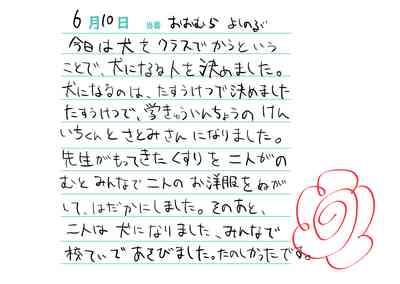 6月10日 当番 おおむら よしのぶ
今日は犬をクラスでかうという
ことで、犬になる人を決めました。
犬になるのは、たすうけつで決めました
たすうけつで、学きゅういいんちょうの けん
いちくんと さとみさんに なりました。
先生がもってきた くすりを 二人がの
むと みんなで二人の お洋服を ぬが
して、はだかにしました。そのあと、
二人は 犬に なりました、みんなで
校ていで あそびました。たのしかったです。